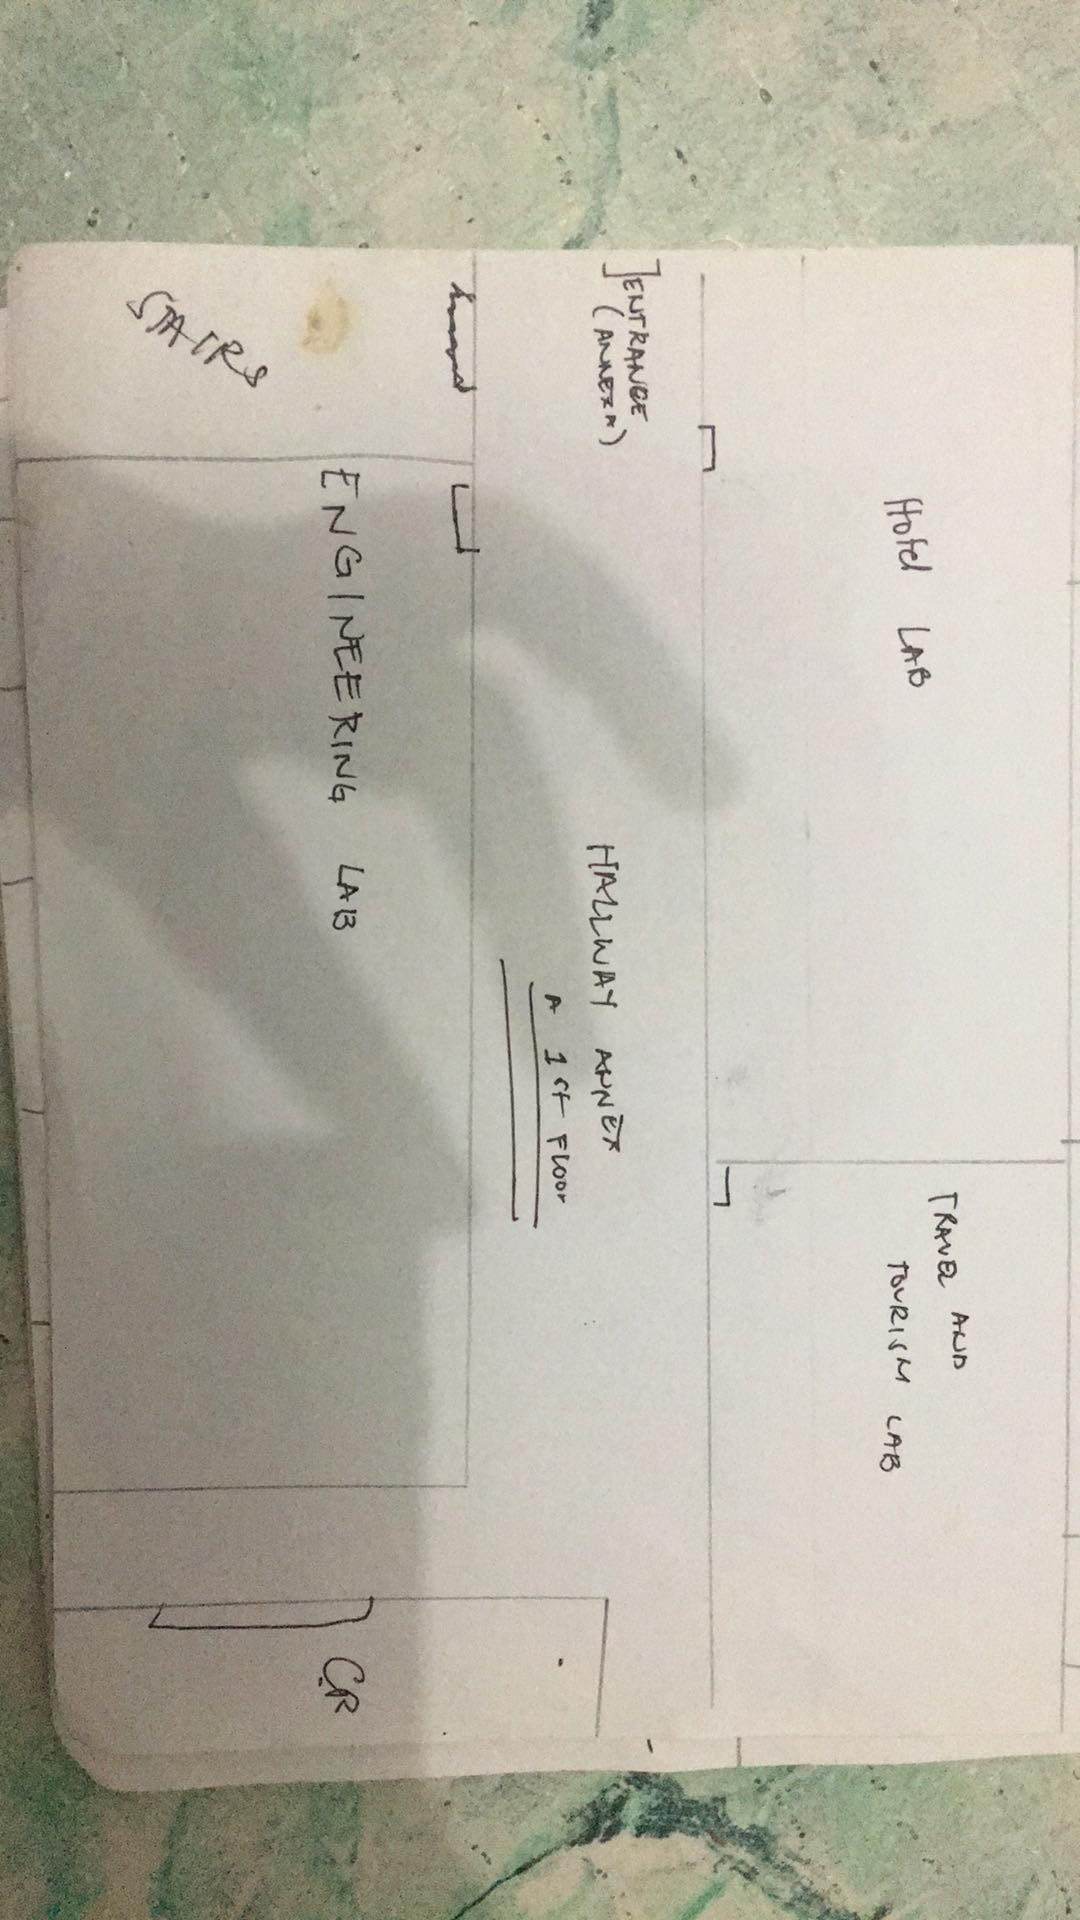 Hotel LAB
TRAVEL AND
TOURISM LAB
ENTRANCE
(ANNEX A)
HALLWAY ANNEX
A 1st Floor
ENGINEERING LAB
CR
STAIRS